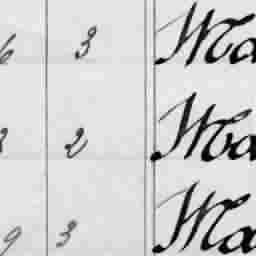 6 3 Ma
2 2 Ma
9 3 Ma